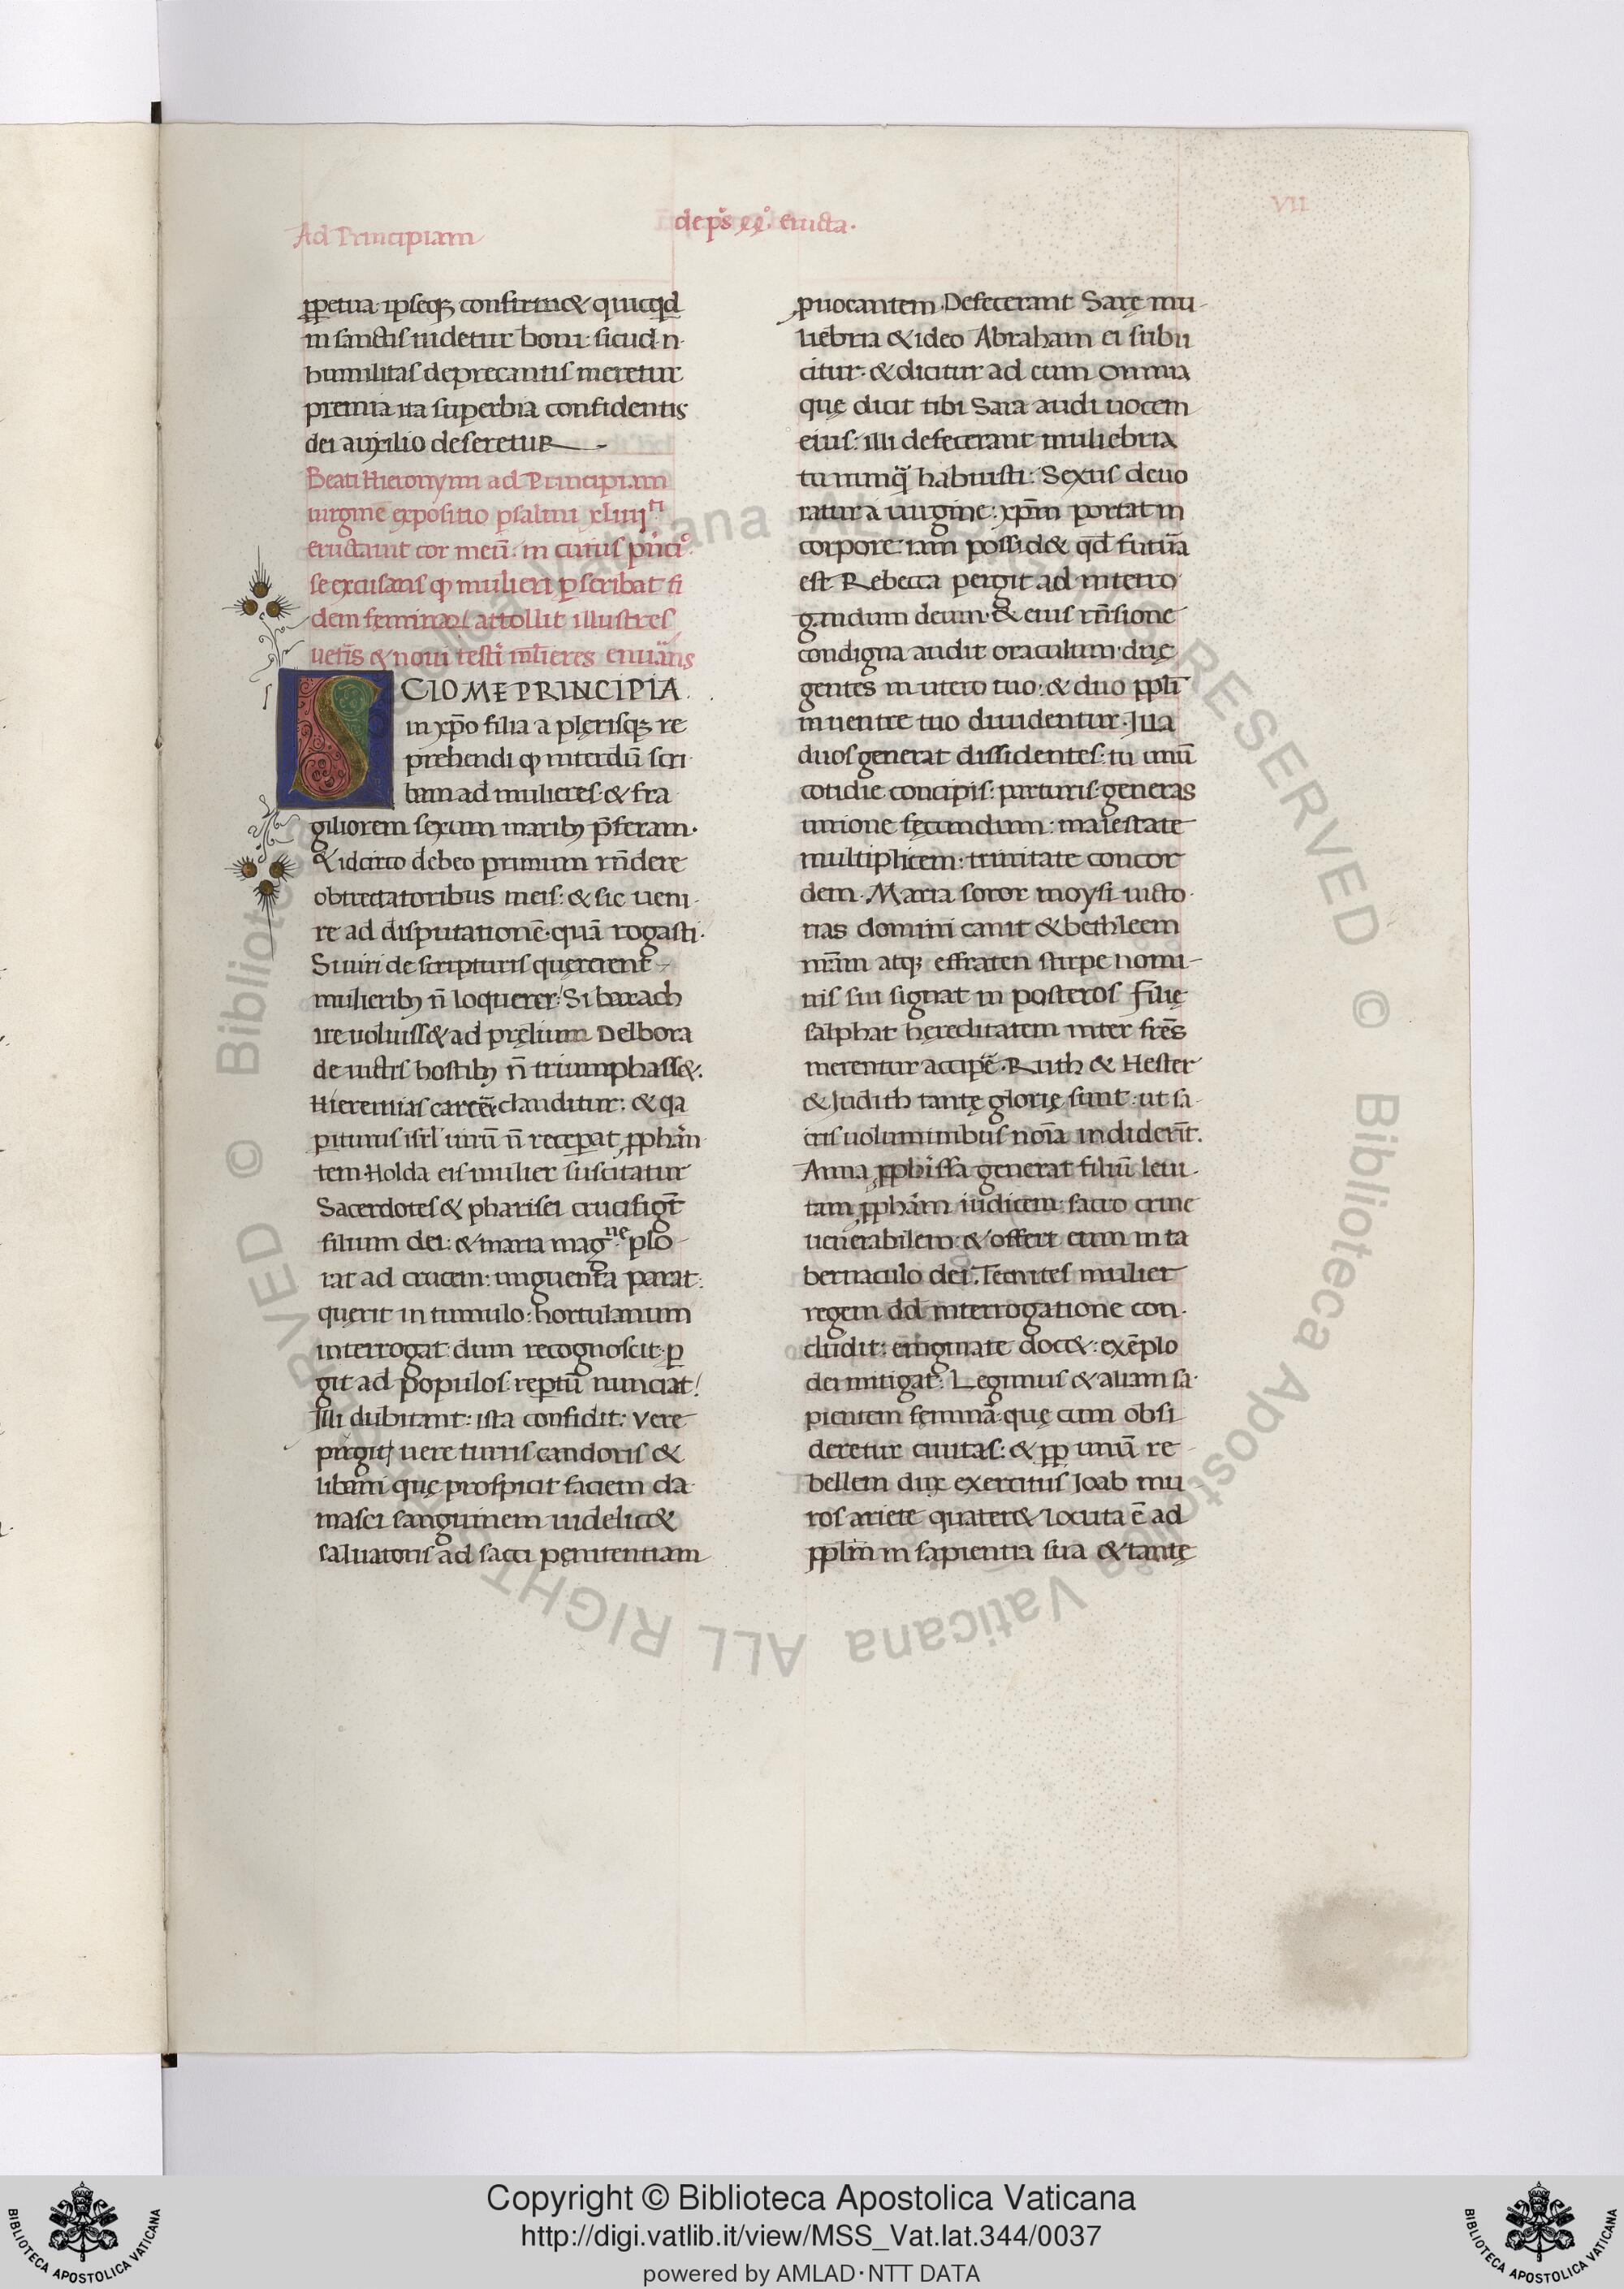 Ad Principiam
de pˢ xl. eructa.
VII
ꝓpetua: ipseqꝫ confirm& quicqd
in sanctis uidetur boni: sicud n
humilitas deprecantis meretur
premia ita superbia confidentis
dei auxilio deseretur
Beati Hieronymi ad Principiam
uirginē expositio psalmi xliiijᵗⁱ
eructauit cor meū: in cuius pⁱnciᵒ
se excusans ꝙ mulieri ꝑscribat fi
dem feminaꝝ attollit illustres
uetīs & noui testī ml̄ieres enuāns
SCIO ME PRINCIPIA
in xp̄o filia a plerisqꝫ re
prehendi ꝙ interdū scri
bam ad mulieres: & fra
giliorem sexum maribꝫ p̄feram.
& idcirco debeo primum rn̄dere
obtrectatoribus meis: & sic ueni
re ad disputationē quā rogasti.
Si uiri de scripturis quęrerent
mulieribꝫ n̄ loquerer: Si barach
ire uoluiss& ad pręlium Delbora
de uictis hostibꝫ n̄ triumphass&.
Hieremias carcēr clauditur: & qa
ꝑiturus isr̄l uirū n̄ receꝑat ꝓphan
tem Holda eis mulier suscitatur
Sacerdotes & pharisei crucifigt̄
filium dei: & maria magⁿᵉ plo
rat ad crucem: unguenta parat:
quęrit in tumulo: hortulanum
interrogat: dum recognoscit: ꝑ
git ad populos: reꝑtū nunciat!
Illi dubitant: ista confidit: vere
pirgitꝭ uere turris candoris &
libani quę prospicit faciem da
masci sanguinem uidelic&
saluatoris ad sacci pęnitentiam
ꝓuocantem. Defecerant Sarę mu
liebria & ideo Abraham ei subii
citur: & dicitur ad eum omnia
quę dicit tibi Sara audi uocem
eius: illi defecerant muliebria
tu nunq̄ habuisti: Sexus deuo
ratur a uirgine: xp̄m portat in
corpore: iam possid& qd futūa
est Rebecca pergit ad interro
gandum deum: & eius rn̄sione
condigna audit oraculum: duę
gentes in utero tuo: & duo ꝓpl̄i
in uentre tuo diuidentur. Illa
duos generat dissidentes: tu unū
cotidie concipis: parturis: generas
unione fęcundum: maiestate
multiplicem: trinitate concor
dem. Maria soror moysi uicto
rias domini canit & bethleem
nr̄am atqꝫ effraten stirpe nomi
nis sui signat in posteros Filię
salphat hęreditatem inter fr̄es
merentur acciꝑē. Ruth & Hester
& Judith tantę glorię sunt: ut sa
cris uoluminibus noīa indiderīt.
Anna ꝓphⁱssa generat filiū leui
tam ꝓphām iudicem: sacro crine
uenerabilem: & offert eum in ta
bernaculo dei. Tecuites mulier
regem dd̄ interrogatione con
cludit: enigmate doc&: exēplo
dei mitigat: Legimus & aliam sa
pientem feminā quę cum obsi
deretur ciuitas: & ꝓp unū re
bellem dux exercitus Joab mu
ros ariete quater& locuta ē ad
ꝓpl̄m in sapientia sua & tantę
© Biblioteca Apostolica Vaticana ALL RIGHTS RESERVED © Biblioteca Apostolica Vaticana ALL RIGHTS RESERVED
BIBLIOTECA APOSTOLICA VATICANA
Copyright © Biblioteca Apostolica Vaticana
http://digi.vatlib.it/view/MSS_Vat.lat.344/0037
powered by AMLAD·NTT DATA
BIBLIOTECA APOSTOLICA VATICANA